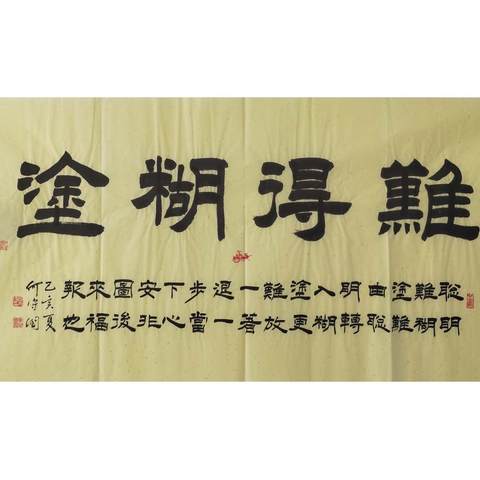 難得糊塗
聡明
難糊
塗難
由聡
明轉
入糊
塗更
難放
一著
退一
步當
下心
安非
圖後
來福
報也
乙亥夏